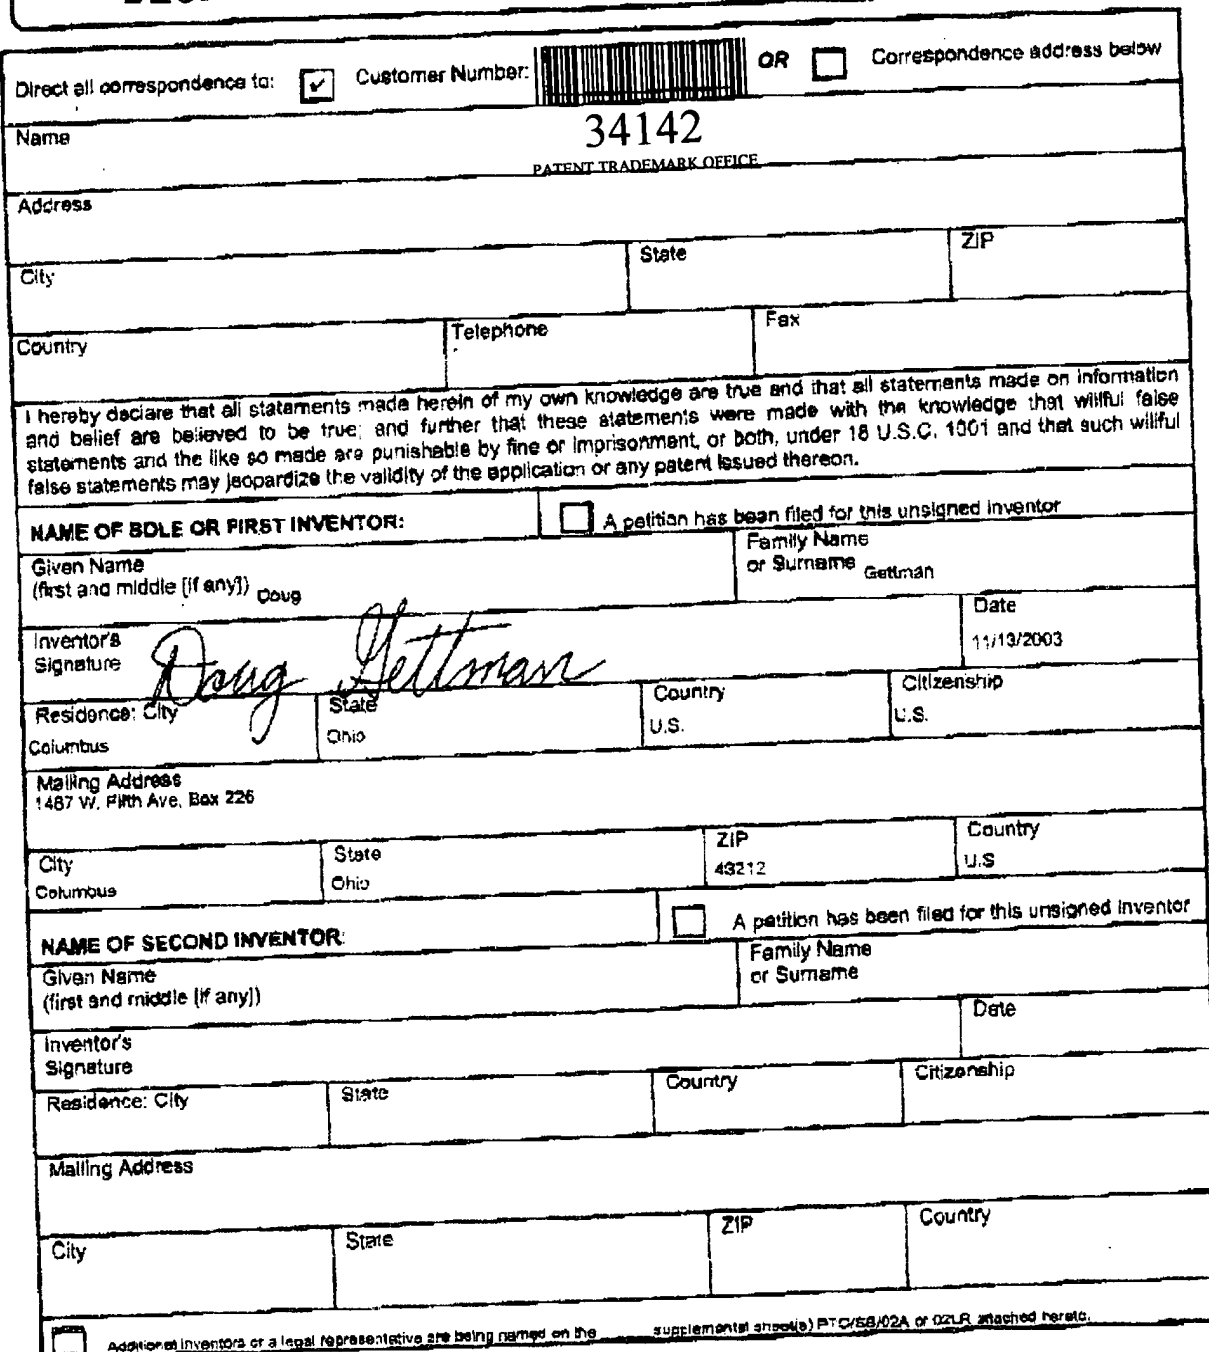 Direct all correspondence to: ✔ Customer Number: OR Correspondence address below
34142
PATENT TRADEMARK OFFICE
Name
Address
City State ZIP
Country Telephone Fax
I hereby declare that all statements made herein of my own knowledge are true and that all statements made on information
and belief are believed to be true; and further that these statements were made with the knowledge that willful false
statements and the like so made are punishable by fine or imprisonment, or both, under 18 U.S.C. 1001 and that such willful
false statements may jeopardize the validity of the application or any patent issued thereon.
NAME OF SOLE OR FIRST INVENTOR: A petition has been filed for this unsigned inventor
Given Name
(first and middle [if any]) Doug
Family Name
or Surname Gettman
Inventor's
Signature Doug Gettman
Date
11/13/2003
Residence: City State Country Citizenship
Columbus Ohio U.S. U.S.
Mailing Address
1487 W. Fifth Ave. Box 226
City State ZIP Country
Columbus Ohio 43212 U.S
NAME OF SECOND INVENTOR: A petition has been filed for this unsigned inventor
Given Name
(first and middle [if any])
Family Name
or Surname
Inventor's
Signature
Date
Residence: City State Country Citizenship
Mailing Address
City State ZIP Country
Additional inventors or a legal representative are being named on the ____ supplemental sheet(s) PTO/SB/02A or 02LR attached hereto.